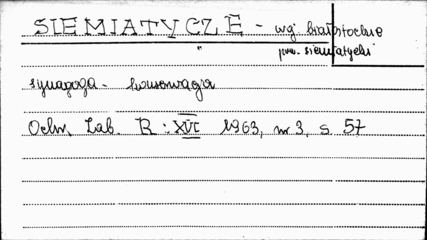 SIEMIATYCZE - wj białostockie
" pow. siemiatycki
synagoga - konserwacja
Ochr. Zab. R: XVI 1963, nr 3, s. 57